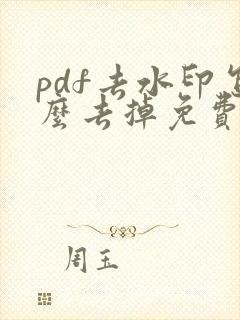 pdf去水印怎
麼去掉免費
周玉